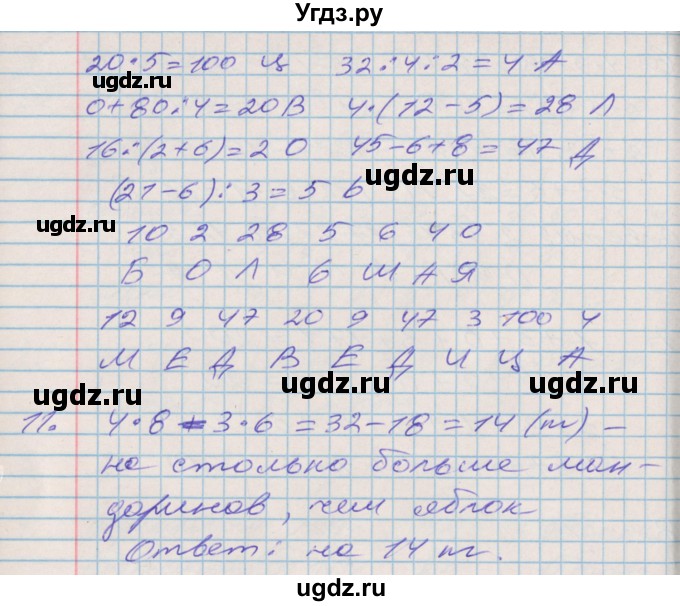 Угдз.ру
20·5=100 Ц 32:4:2=4 А
ugdz.ru
0+80:4=20 В 4·(12-5)=28 Л
16:(2+6)=2 О 45-6+8=47 Д
ugdz.ru
(21-6):3=5 Ь
ugdz.ru
10 2 28 5 6 40
Б О Л Ь Ш А Я
12 9 47 20 9 47 3 100 4
М Е Д В Е Д И Ц А
ugdz.ru ugdz.ru ugdz.ru
11. 4·8-3·6=32-18=14 (м) -
на столько больше ман-
даринов, чем яблок
ugdz.ru
Ответ: на 14 м.
ugdz.ru
ugdz.ru